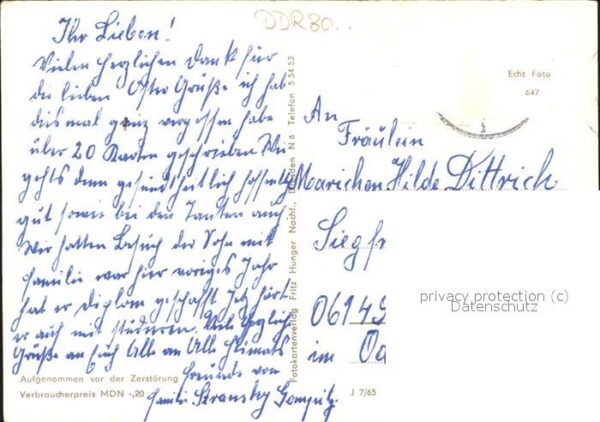 DDR 80..
Ihr Lieben!
Vielen herzlichen Dank für
die lieben Oster Grüße ich hab
diesmal ganz vergessen habe
über 20 Karten geschrieben Wie
gehts denn gesundheitlich hoffentlich
gut sowie bei den Tanten auch
Wir hatten Besuch der Sohn mit
Familie war hier voriges Jahr
hat er Diplom geschafft Jetz hört
er auf mit studieren. Viele
Grüße an Euch Alle an Alle Heimats
freunde von
Familie Stransky
Aufgenommen vor der Zerstörung
Verbraucherpreis MDN -,20
J 7/65
Fotokartenverlag Fritz Hunger Nachf., N 6 Telefon 5 54 53
Echt Foto
647
An
Fräulein
Mariechen Hilde Dittrich
Siegfr
06149
im Od
privacy protection (c)
Datenschutz